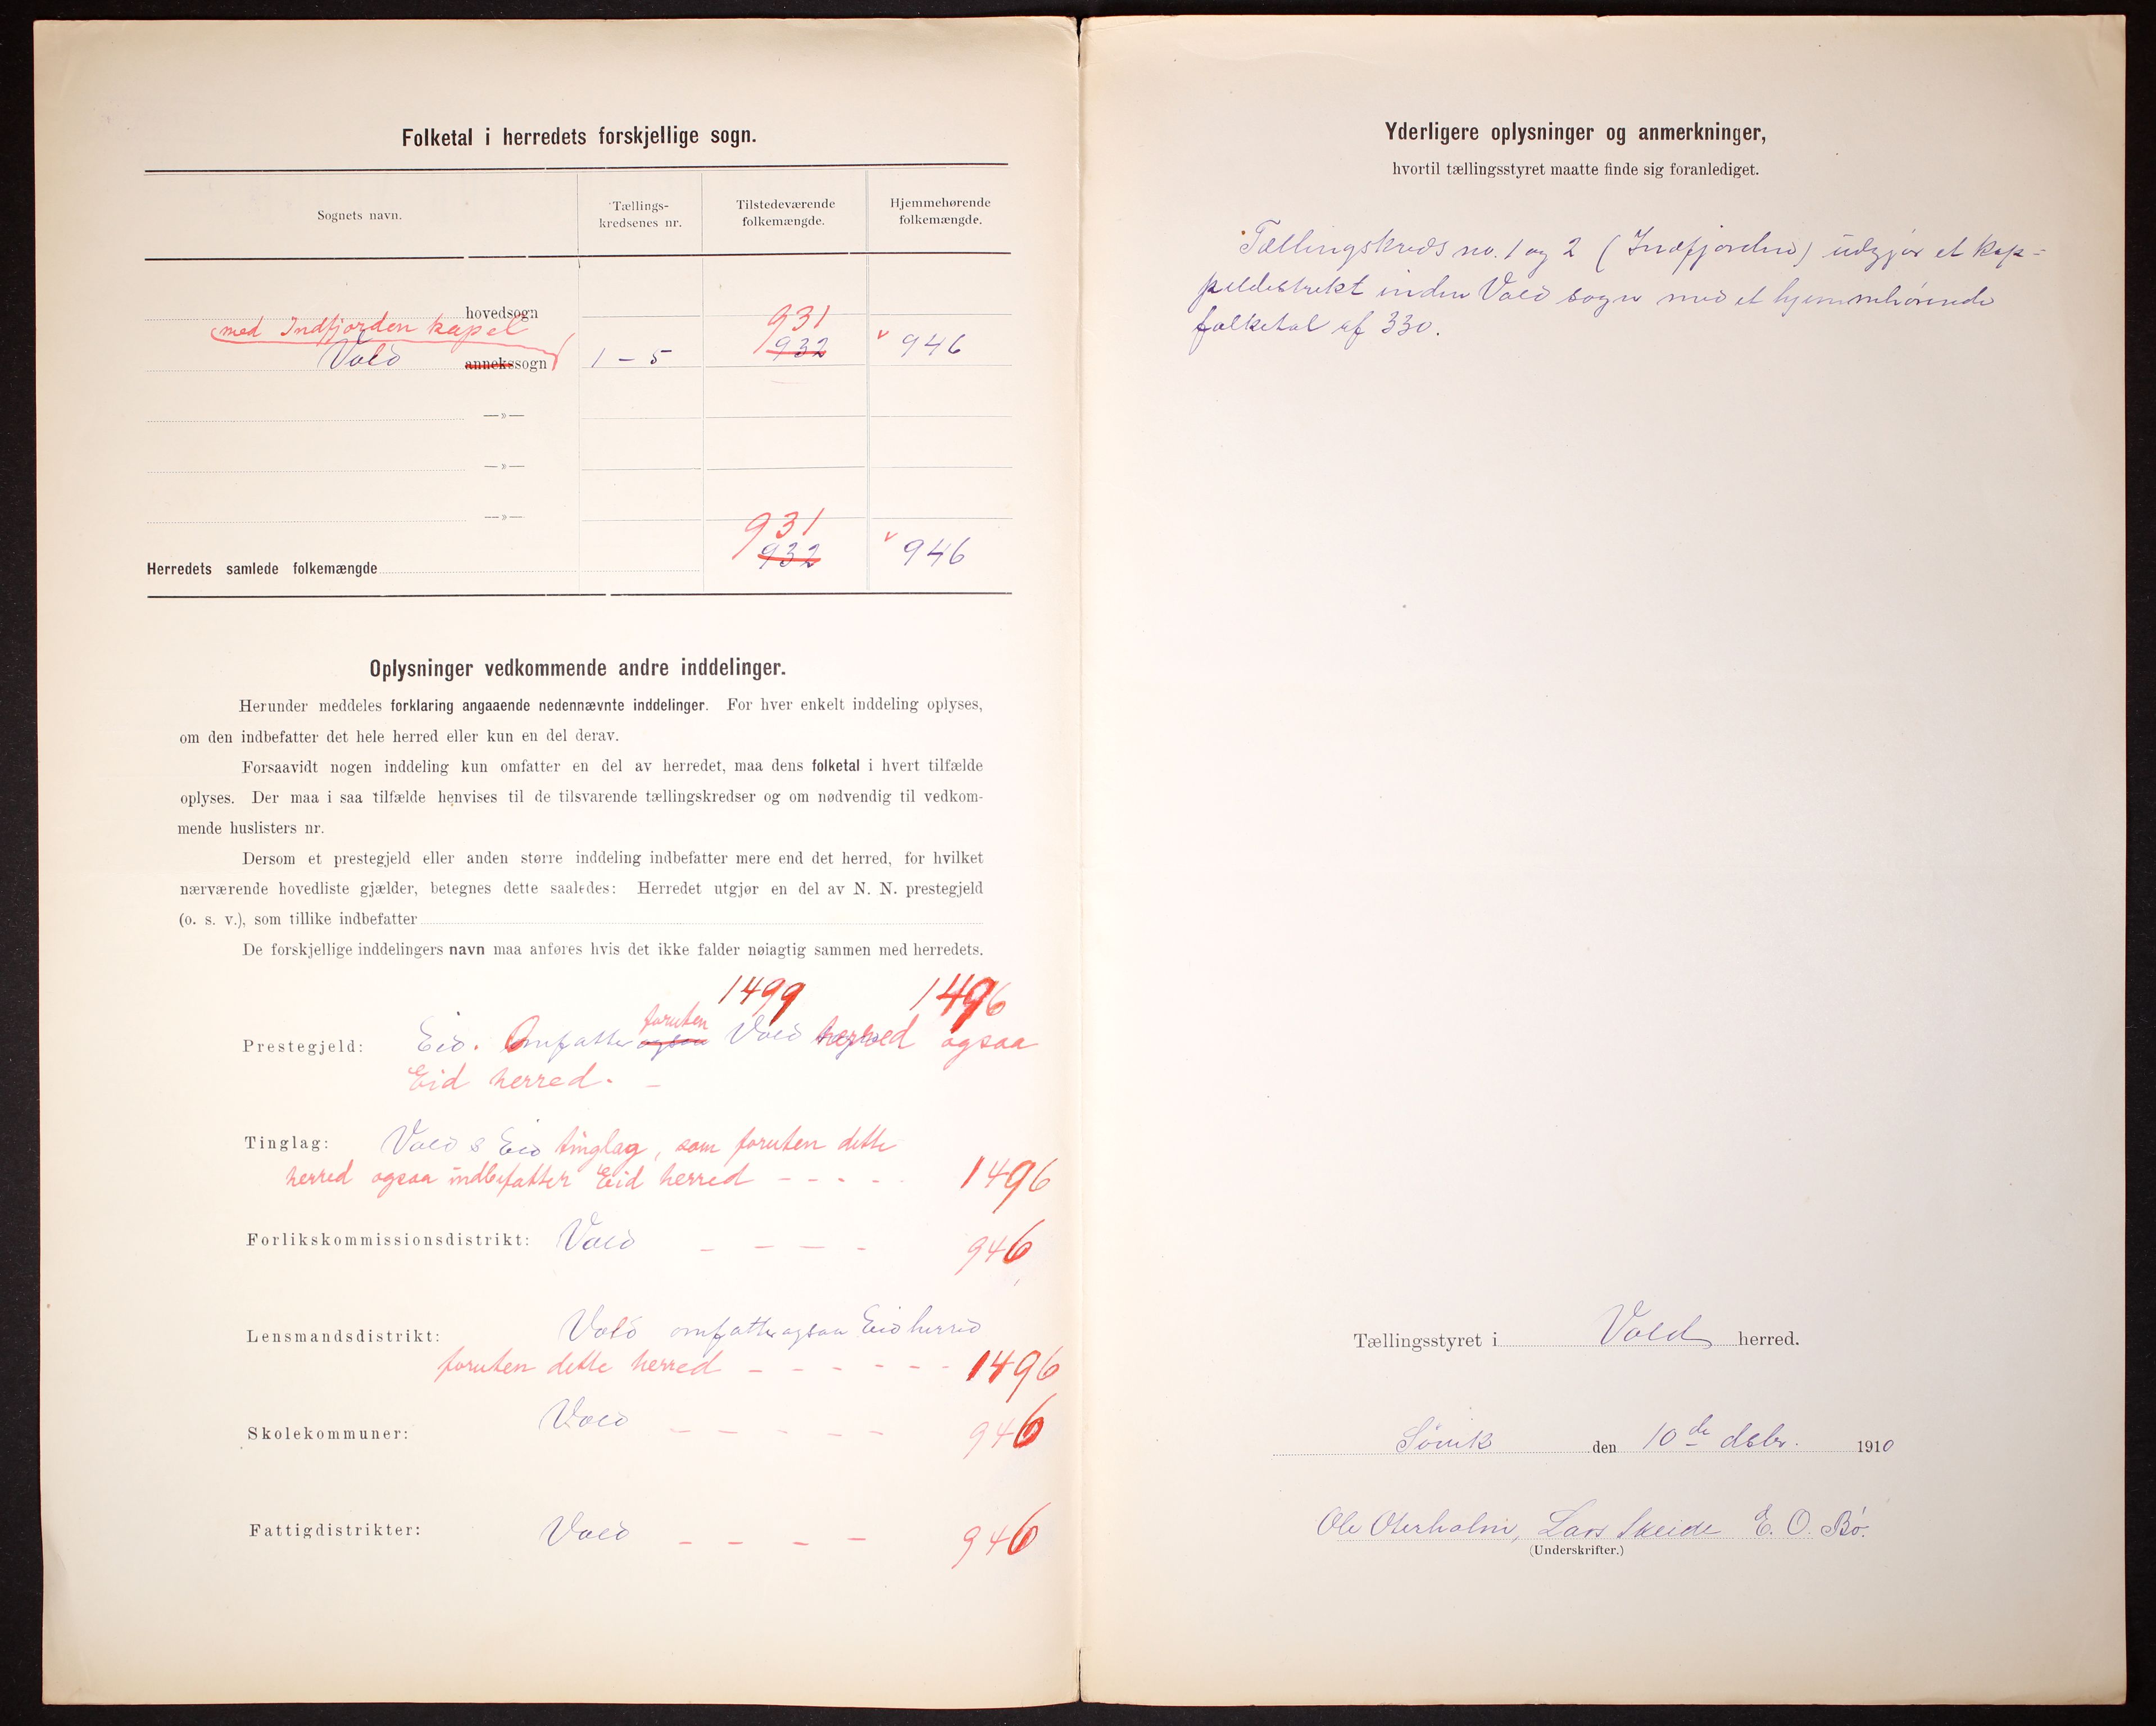 Folketal i herredets forskjellige sogn.
Sognets navn.
Tællings-
kredsenes nr.
Tilstedeværende
folkemængde.
Hjemmehørende
folkemængde.
hovedsogn
med Indfjorden kapel
931
Vold annekssogn 1 - 5 932 v 946
—»—
—»—
—»—
931
Herredets samlede folkemængde 932 v 946
Oplysninger vedkommende andre inddelinger.
Herunder meddeles forklaring angaaende nedennævnte inddelinger. For hver enkelt inddeling oplyses,
om den indbefatter det hele herred eller kun en del derav.
Forsaavidt nogen inddeling kun omfatter en del av herredet, maa dens folketal i hvert tilfælde
oplyses. Der maa i saa tilfælde henvises til de tilsvarende tællingskredser og om nødvendig til vedkom-
mende huslisters nr.
Dersom et prestegjeld eller anden større inddeling indbefatter mere end det herred, for hvilket
nærværende hovedliste gjælder, betegnes dette saaledes: Herredet utgjør en del av N. N. prestegjeld
(o. s. v.), som tillike indbefatter
De forskjellige inddelingers navn maa anføres hvis det ikke falder nøiagtig sammen med herredets.
1499 1496
foruten
Prestegjeld: Eid. Omfatter ogsaa Vold herred ogsaa
Eid herred. –
Tinglag: Vold & Eid tinglag, som foruten dette
herred ogsaa indbefatter Eid herred - - - - - 1496
Forlikskommissionsdistrikt: Vold - - - - 946
Lensmandsdistrikt: Vold omfatter ogsaa Eid herred
foruten dette herred - - - - - - - 1496
Skolekommuner: Vold - - - - - 946
Fattigdistrikter: Vold - - - - 946
Yderligere oplysninger og anmerkninger,
hvortil tællingsstyret maatte finde sig foranlediget.
Tællingskreds no. 1 og 2 (Indfjorden) udgjør et kap=
peldistrikt inden Vold sogn med et hjemmehørende
folketal af 330.
Tællingsstyret i Vold herred.
Sövik den 10de desbr. 1910
Ole Oterholm, Lars Skeide E. O. Bø.
(Underskrifter.)